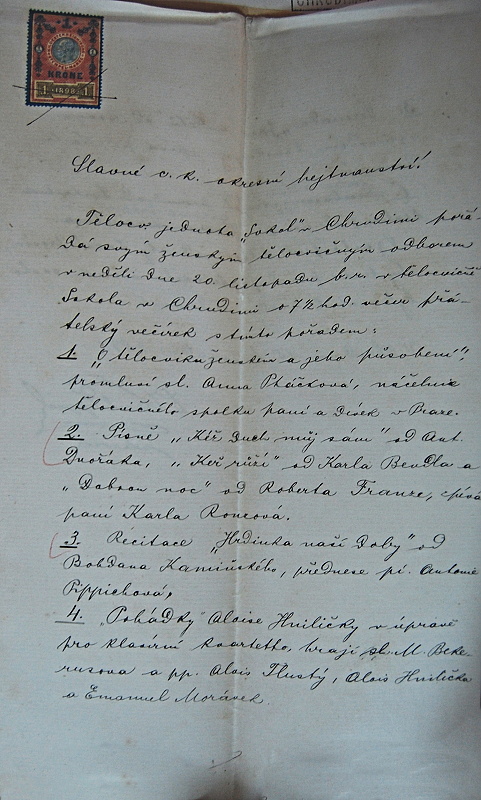 CHRUDIM
1
KRONE
1 1898 1
Slavné c. k. okresní hejtmanství!
Tělocv. jednota „Sokol" v Chrudimi pořá-
dá svým ženským tělocvičným odborem
v neděli dne 20. listopadu b. r. v tělocvičně
Sokola v Chrudimi o 7½ hod. večer přá-
telský večírek s tímto pořadem:
1. „O tělocviku ženském a jeho působení",
promluví sl. Anna Ptáčková, náčelnice
tělocvičného spolku paní a dívek v Praze.
2. Písně „Kéž duch můj sám" od Ant.
Dvořáka, „Keř růží" od Karla Bendla a
„Dobrou noc" od Roberta Franze, zpívá
paní Karla Roncová.
3. Recitace „Hrdinka naší doby" od
Bohdana Kaminského, přednese pí. Antonie
Pippichová,
4. „Pohádky" Aloise Hniličky v úpravě
pro klavírní kvartetto, hrají sl. M. Beke-
rusova a pp. Alois Tlustý, Alois Hnilička
a Emanuel Morávek.